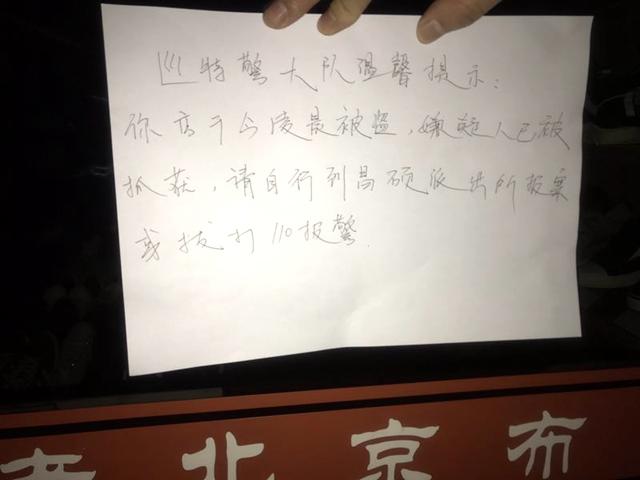 巡特警大队温馨提示:
你店于今凌晨被盗,嫌疑人已被
抓获,请自行到昌硕派出所报案
或拔打110报警.
老北京布